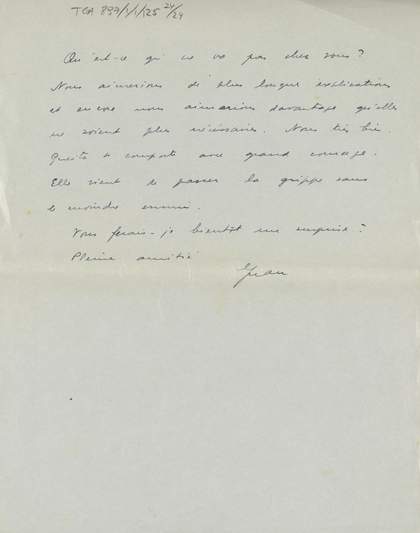 TGA 897/1/1/25 24/24
Qu'est-ce qui ne va pas chez vous?
Nous aimerions de plus longues explications
et encore nous aimerions davantage qu'elles
ne soient plus nécessaires. Nous très bien.
se comporte avec grand courage.
Elle vient de passer la grippe sans
le moindre ennui.
Vous ferais-je bientôt une surprise?
Pleine amitié
Juan